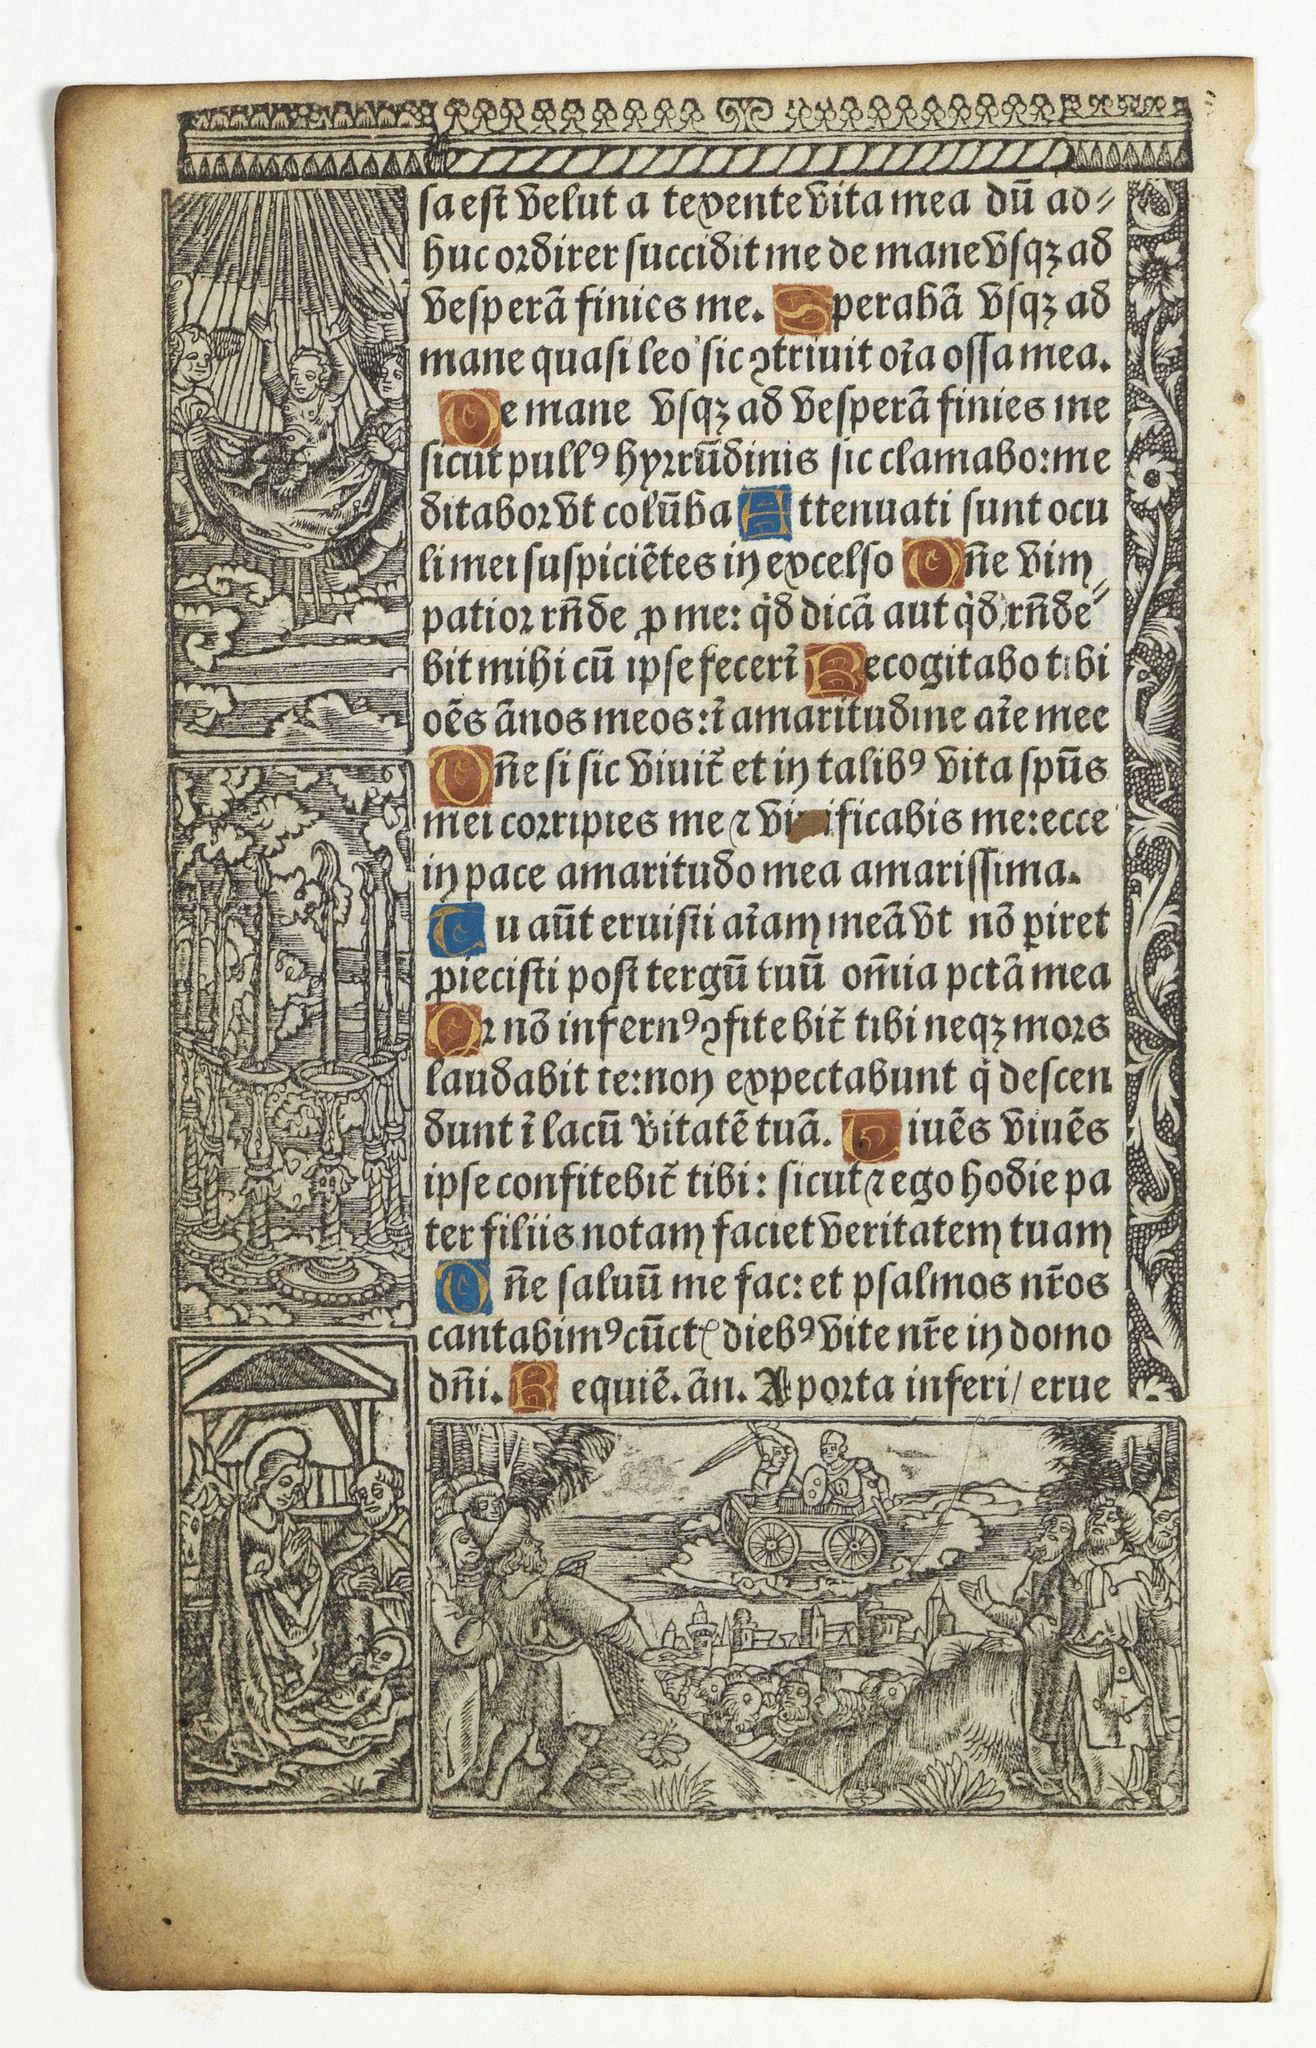 sa est velut a texente vita mea dū ad⸗
huc ordirer succidit me de mane vsqꝫ ad
vesperā finies me. Sperabā vsqꝫ ad
mane quasi leo sic ꝯtriuit oīa ossa mea.
De mane vsqꝫ ad vesperā finies me
sicut pullꝰ hyrrūdinis sic clamabo: me
ditabor vt colūba Attenuati sunt ocu
li mei suspiciētes in excelso Dn̄e vim
patior rn̄de ꝓ me: qd̓ dicā aut qd̓ rn̄de⸗
bit mihi cū ipse fecerī Recogitabo tibi
oēs ānos meos: ī amaritudine aīe mee
Dn̄e si sic viuit̄ et in talibꝰ vita spūs
mei corripies me ⁊ viuificabis me: ecce
in pace amaritudo mea amarissima.
Tu aūt eruisti aīam meā vt nō ꝑiret
ꝓiecisti post tergū tuū om̄ia pctā mea
Qr nō infernꝰ ꝯfitebit̄ tibi neqꝫ mors
laudabit te: non expectabunt q̄ descen
dunt ī lacū v̓itatē tuā. Viuēs viuēs
ipse confitebit̄ tibi: sicut ⁊ ego hodie pa
ter filiis notam faciet veritatem tuam
Dn̄e saluū me fac: et psalmos nr̄os
cantabimꝰ cūctꝭ diebꝰ vite nr̄e in domo
dn̄i. Requiē. ān. A porta inferi / erue